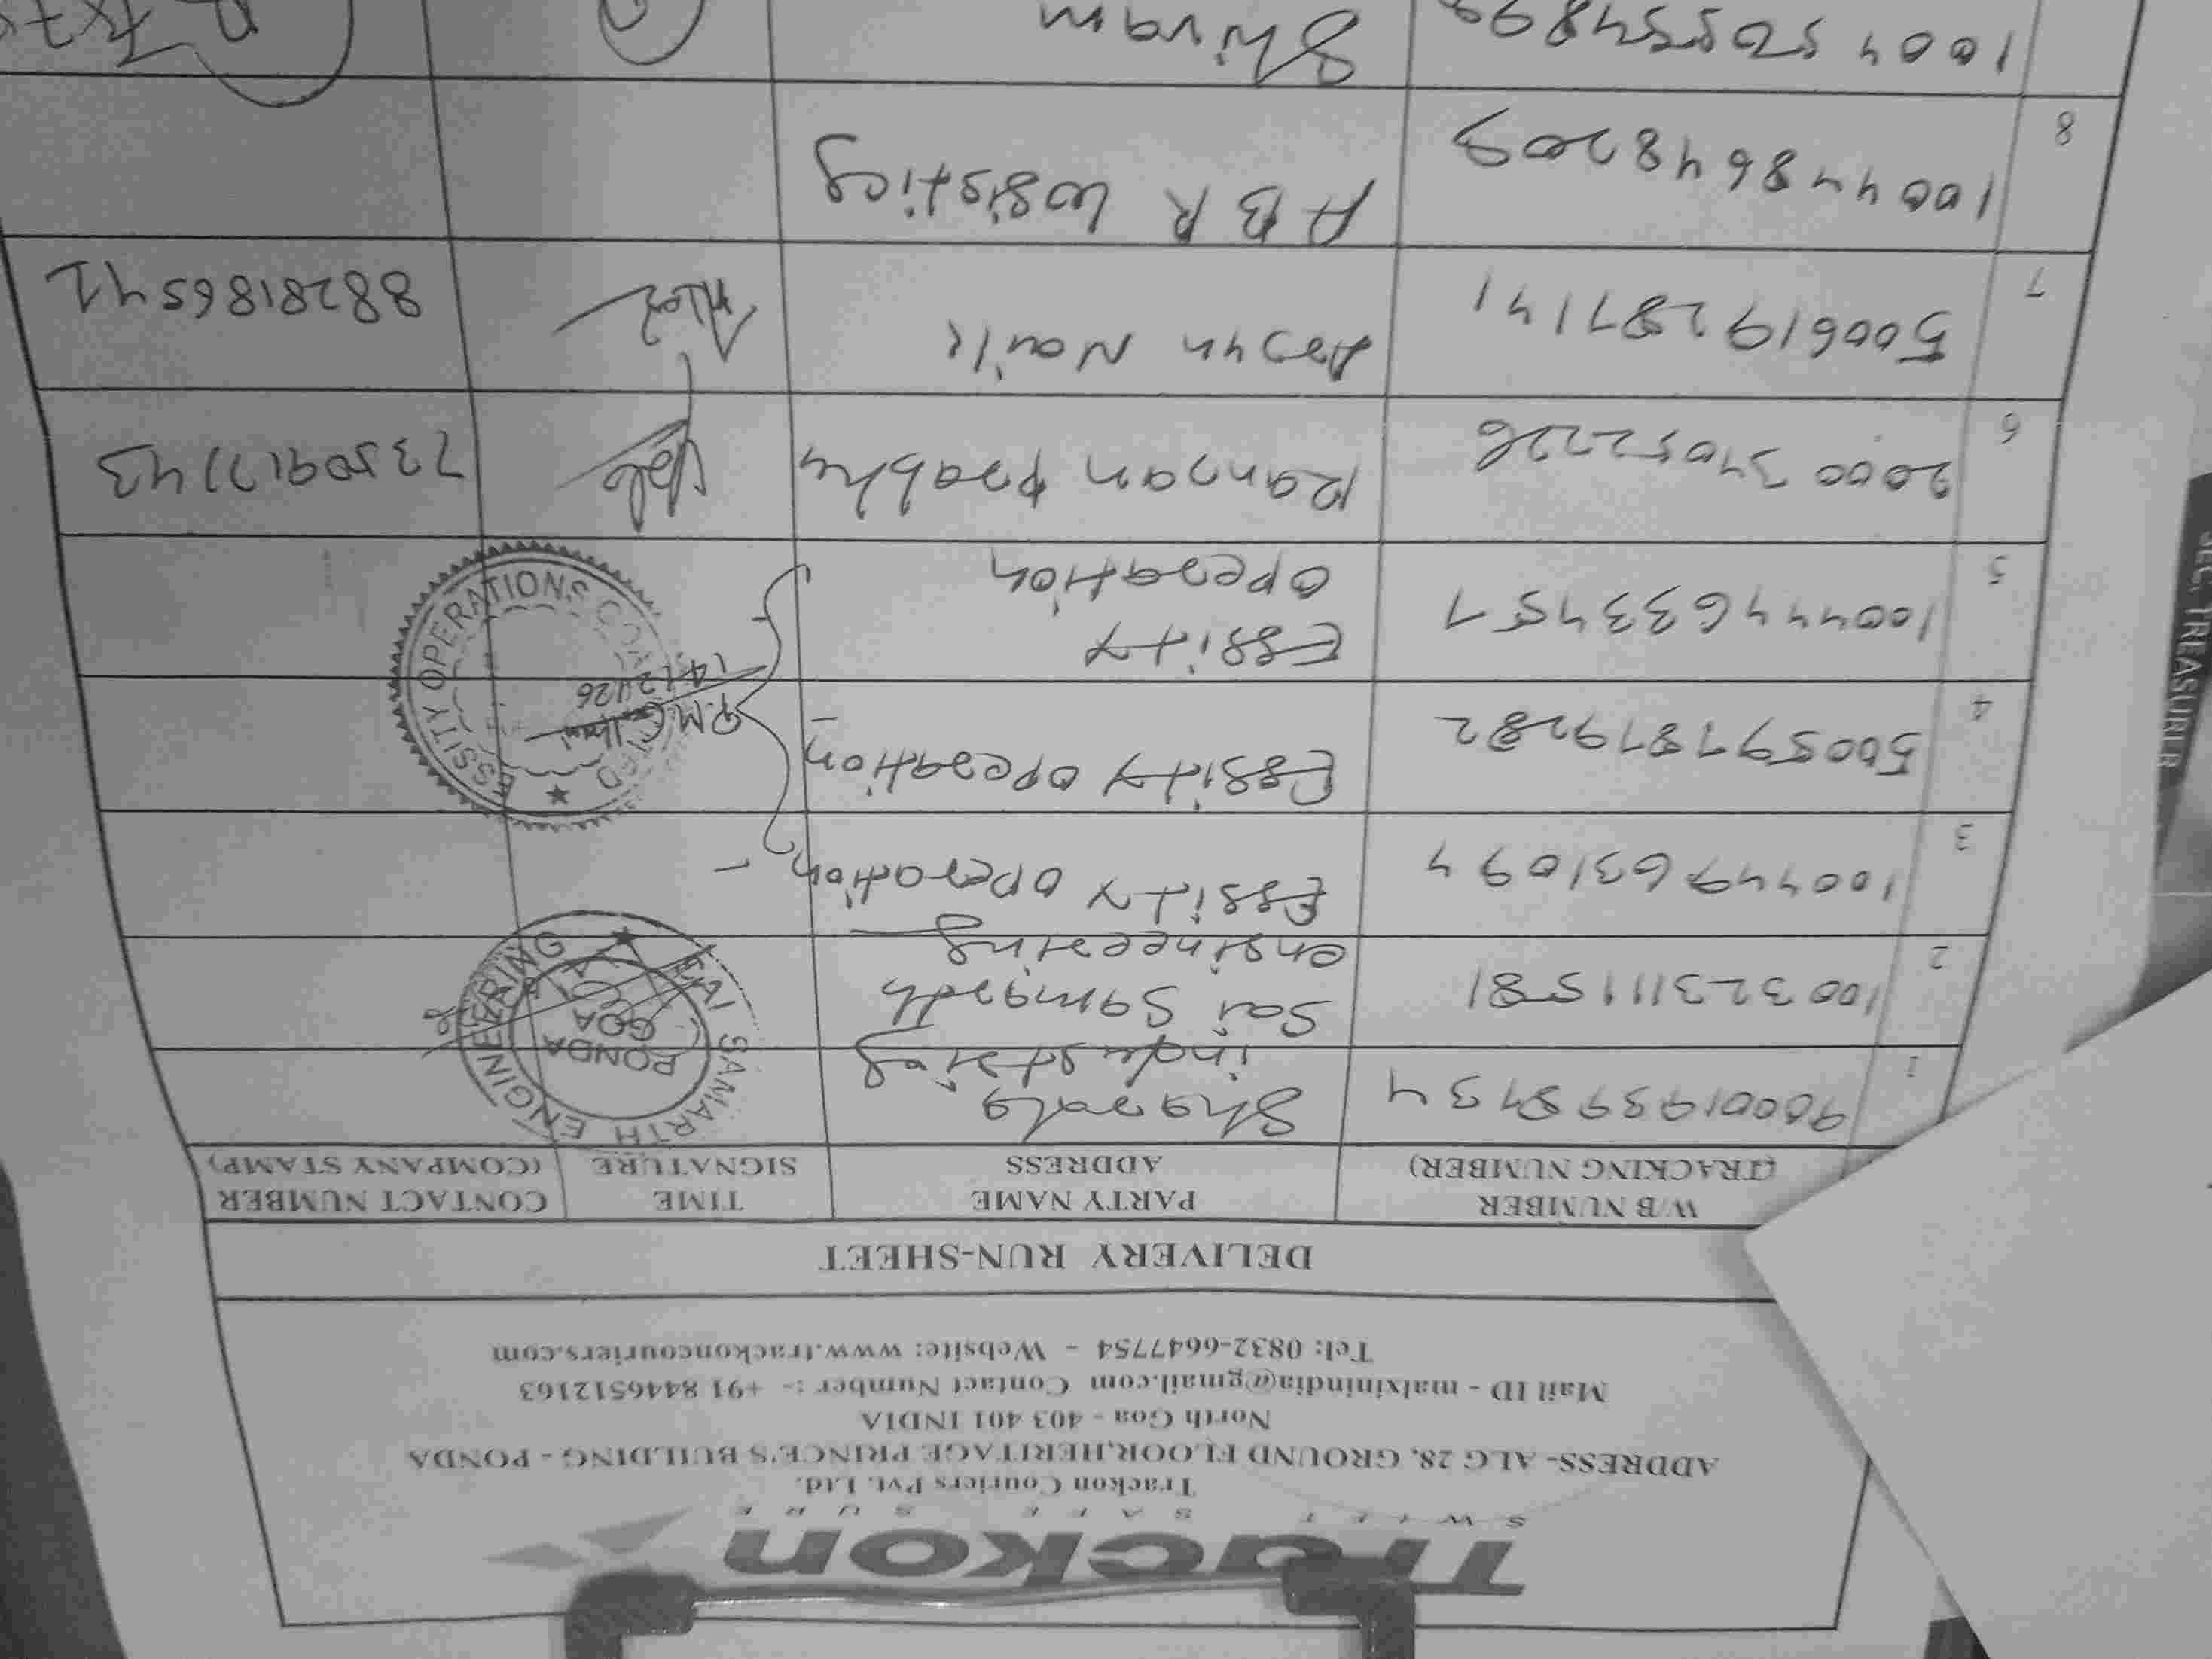 Trackon
SWIFT SAFE SURE
Trackon Couriers Pvt. Ltd.
ADDRESS- ALG 28, GROUND FLOOR,HERITAGE PRINCE'S BUILDING - PONDA
North Goa - 403 401 INDIA
Mail ID - malxinindia@gmail.com Contact Number :- +91 8446512163
Tel: 0832-6647754 - Website: www.trackoncouriers.com
DELIVERY RUN-SHEET
W/B NUMBER
(TRACKING NUMBER)
PARTY NAME
ADDRESS
TIME
SIGNATURE
CONTACT NUMBER
(COMPANY STAMP)
1
Sharada
industries
SAI SAMARTH ENGINEERING
PONDA
GOA
2 100323111581
Sai Samarth
engineering
3 100449631094
Essity operation
4 500597879282
Essity operation
ESSITY OPERATIONS
5 100444633451
Essity
operation
6 200034052226
Ranjan prabhu
7 500619287141
Arjun Naik
8828186541
8 100448648209
ABR Logistics
Shivam
SEC. TREASURER